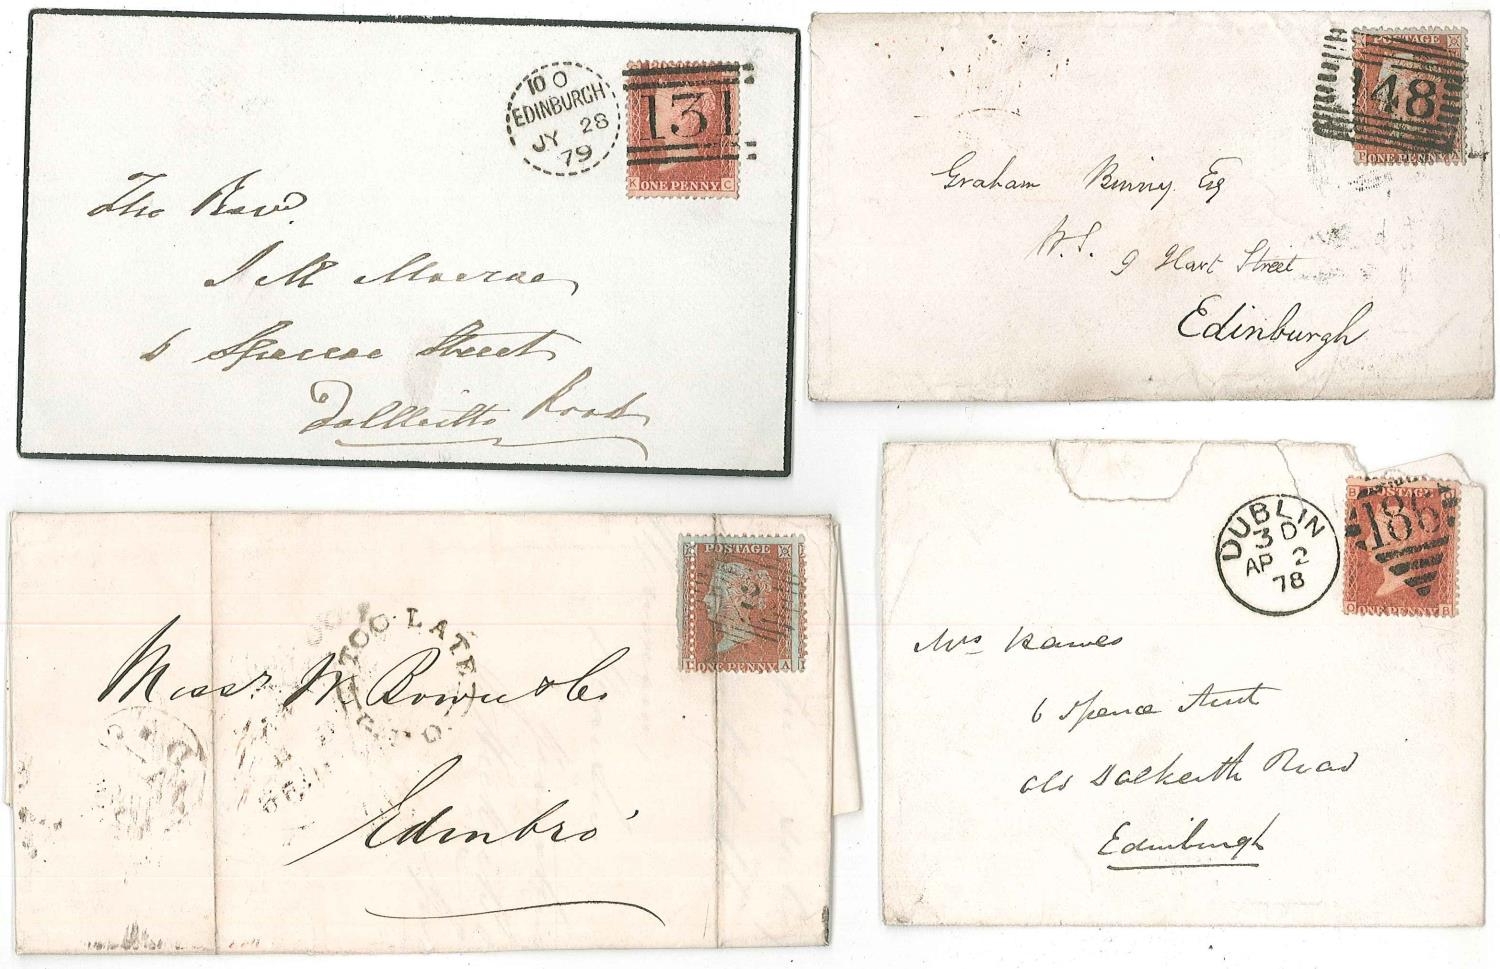 10 O
EDINBURGH
JY 28
79
131
K C
ONE PENNY
The Revd.
6 Spence Street
Dalkeith Road
POSTAGE
148
ONE PENNY
Graham Binny Esq
W.S. 9 Hart Street
Edinburgh
POSTAGE
ONE PENNY
A
TOO LATE
Messrs W
Edinbro'
DUBLIN
3 D
AP 2
78
B O
POSTAGE
186
O B
ONE PENNY
Mrs
6 Spence Street
Old Dalkeith Road
Edinburgh